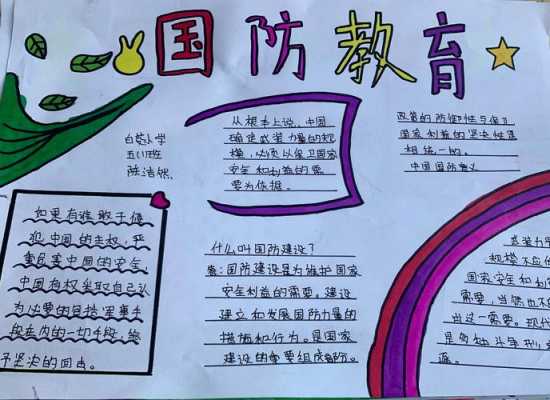 国防教育
白塔小学
五(1)班
陈洁
从根本上说,中国
确定武装力量的规
模,必须以保卫国家
安全和利益的需
要为依据。
政策的防御性与保卫
国家利益的坚决性是
相统一的。
中国国防意义
如果有谁敢于侵
犯中国的主权,严
重危害中国的安全,
中国有权采取自己认
为必要的包括军事手
段在内的一切手段,给
予坚决的回击。
什么叫国防建设?
答:国防建设是为维护国家
安全利益的需要,建设
建立和发展国防力量的
措施和行为。是国家
建设的重要组成部分。
武装力量
规模不应
国家安全和利
需要,当然也不
出这一需要。现代
是
源。